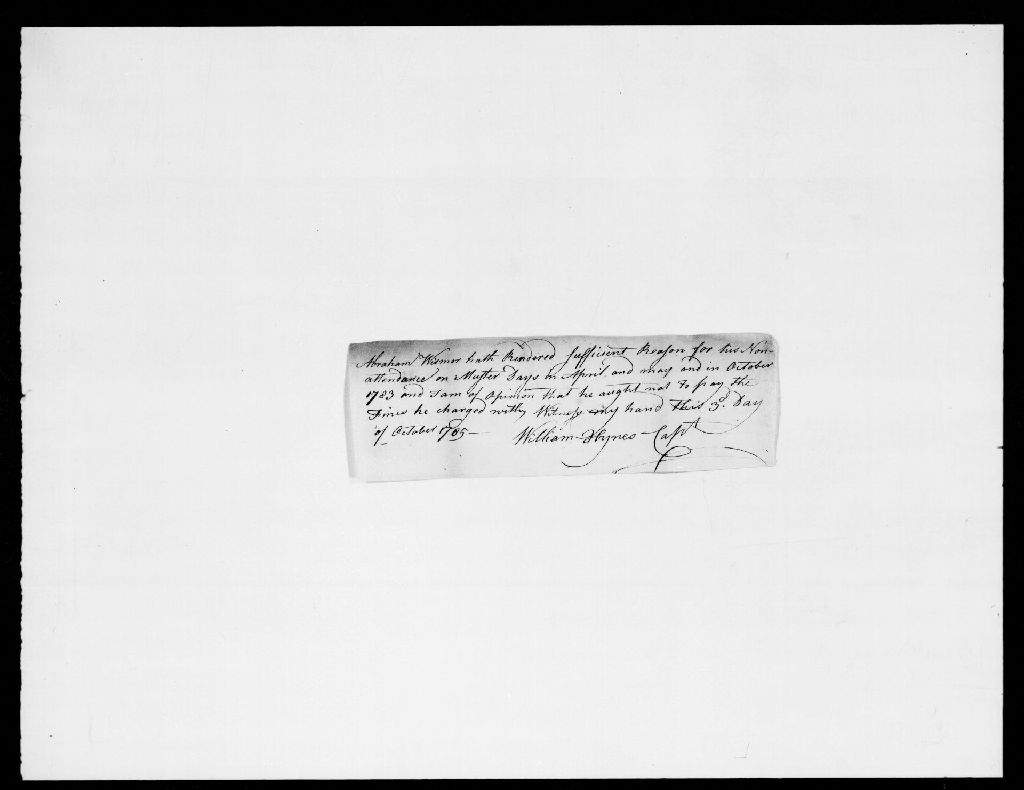 Abraham Wismer hath Rendered sufficient Reason for his Non-
attendance on Muster Days in April and may and in October
1783 and I am of Opinion that he aught not to pay the
Fines he charged with Witness my hand this 3d. Day
of October 1785
William Hynes Capt